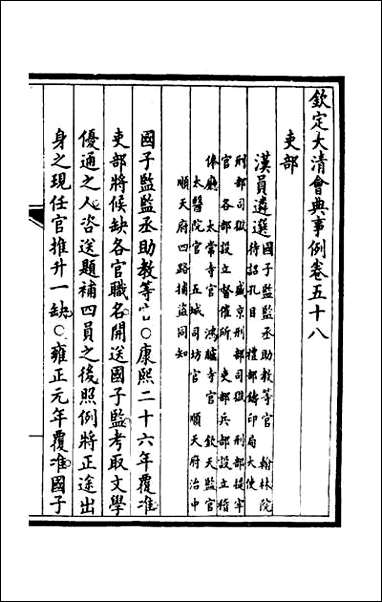 欽定大清會典事例卷五十八
吏部
漢員遴選
國子監監丞助教等官 翰林院
待詔孔目 禮部鑄印局大使
刑部司獄 盛京刑部司獄 刑部提牢
官各部設立督催所 吏部兵部設立稽
俸廳 太常寺官 鴻臚寺官 欽天監官
太醫院官 五城司坊官 順天府治中
順天府四路捕盜同知
國子監監丞助教等官○康熙二十六年覆准
吏部將候缺各官職名開送國子監考取文學
優通之人咨送題補四員之後照例將正途出
身之現任官推升一缺○雍正元年覆准國子